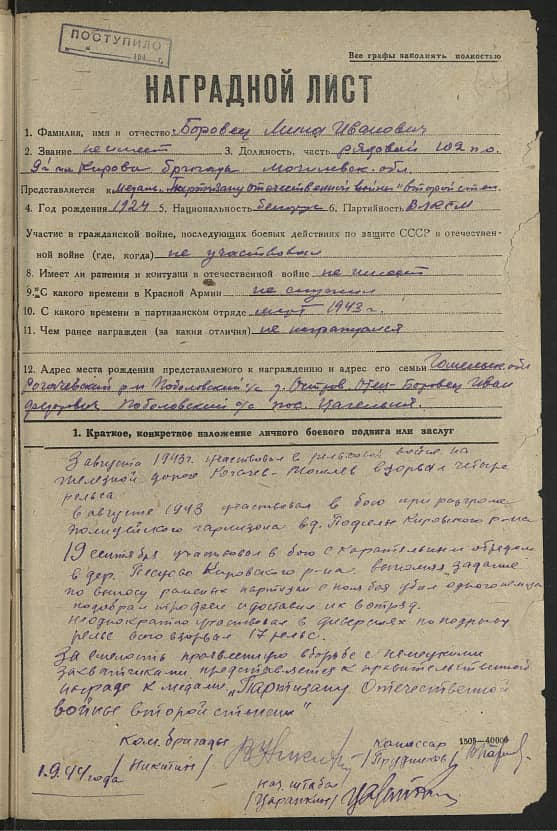 ПОСТУПИЛО
Все графы заполнять полностью
НАГРАДНОЙ ЛИСТ
1. Фамилия, имя и отчество Боровец Мина Иванович
2. Звание не имеет 3. Должность, часть рядовой 102 п.о.
9й им Кирова бригады Могилевск. обл.
Представляется к медали "Партизану отечественной войны" второй степ.
4. Год рождения 1924 5. Национальность белорус 6. Партийность ВЛКСМ
Участие в гражданской войне, последующих боевых действиях по защите СССР и отечествен-
ной войне (где, когда) не участвовал
8. Имеет ли ранения и контузии в отечественной войне не имеет
9. С какого времени в Красной Армии не служил
10. С какого времени в партизанском отряде март 1943 г.
11. Чем ранее награжден (за какия отличия) не награждался
12. Адрес места рождения представляемого к награждению и адрес его семьи Гомельск. обл
Рогачевский р-н Поболовский с/с д. Остров. Отец - Боровец Иван
Поболовский с/с пос.
1. Краткое, конкретное изложение личного боевого подвига или заслуг
3 августа 1943 г. участвовал в рельсовой войне на
железной дороге Рогачев-Могилев взорвал четыре
рельса.
в августе 1943 участвовал в бою при разгроме
полицейского гарнизона в д. Подселы Кировского р-на
19 сентября участвовал в бою с карательным отрядом
в дер. Кировского р-на. выполняя задание
по выносу раненых партизан с поля боя убил одного немца
подобрал трофеи и доставил их в отряд.
неоднократно участвовал в диверсиях по подрыву
рельс всего взорвал 17 рельс.
За смелость проявленную в борьбе с немецкими
захватчиками представляется к правительственной
награде к медали "Партизану Отечественной
войны второй степени"
1505—40000
Ком. бригады Комиссар
/Никитин/ /Прудников/
1.9.44 года
Нач. штаба
/Царапкин/